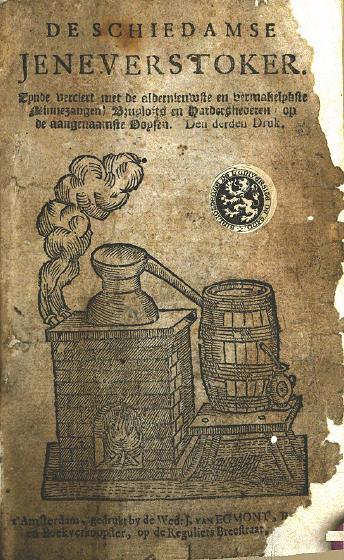 DE SCHIEDAMSE
JENEVERSTOKER.
Zynde verciert met de aldernieuwste en vermakelykste
Minnezangen, Bruylofts en Harders-liederen, op
de aangenaamste Voysen. Den derden Druk.
t'Amsterdam, gedrukt by de Wed: J. VAN EGMONT,
en Boekverkoopster, op de Reguliers Breestraat,